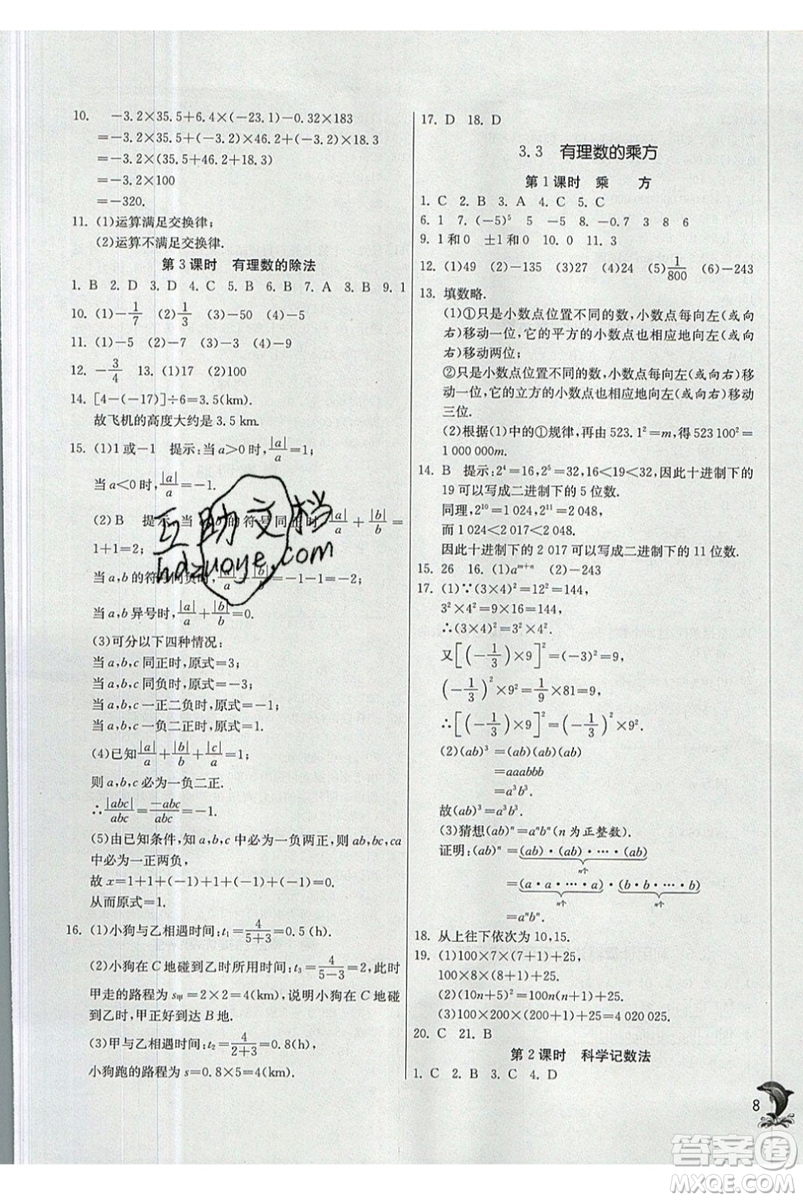 10. －3.2×35.5＋6.4×(－23.1)－0.32×183
＝－3.2×35.5＋(－3.2)×46.2－3.2×18.3
＝－3.2×(35.5＋46.2＋18.3)
＝－3.2×100
＝－320.
11. (1)运算满足交换律;
(2)运算不满足交换律.
第3课时 有理数的除法
1. B 2. D 3. D 4. A 5. C 6. B 7. A 8. B 9. 1
10. (1)－1/7 (2)1/3 (3)－50 (4)－5
11. (1)－5 (2)－9 (3)－7
12. －3/4 13. (1)17 (2)100
14. [4－(－17)]÷6＝3.5(km).
故飞机的高度大约是3.5 km.
15. (1)1或－1 提示:当a＞0时,|a|/a＝1;
当a＜0时,|a|/a＝－1.
(2) B 提示:当a,b的符号同正时,|a|/a＋|b|/b＝
1＋1＝2;
当a,b的符号同负时,|a|/a＋|b|/b＝－1－1＝－2;
当a,b异号时,|a|/a＋|b|/b＝0.
(3)可分以下四种情况:
当a,b,c同正时,原式＝3;
当a,b,c同负时,原式＝－3;
当a,b,c一正二负时,原式＝－1;
当a,b,c一负二正时,原式＝1.
(4)已知|a|/a＋|b|/b＋|c|/c＝1,
则a,b,c必为一负二正.
∴|abc|/abc＝－abc/abc＝－1.
(5)由已知条件,知a,b,c中必为一负两正,则ab,bc,ca
中必为一正两负,
故x＝1＋1＋(－1)＋1＋(－1)＋(－1)＝0.
从而原式＝1.
16. (1)小狗与乙相遇时间:t₁＝4/(5＋3)＝0.5(h).
(2)小狗在C地碰到乙时所用时间:t₃＝4/(5－3)＝2(h).
甲走的路程为s甲＝2×2＝4(km),说明小狗在C地碰
到乙时,甲正好到达B地.
(3)甲与乙相遇时间:t＝4/(2＋3)＝0.8(h).
小狗跑的路程为s＝0.8×5＝4(km).
17. D 18. D
3.3 有理数的乘方
第1课时 乘 方
1. C 2. B 3. A 4. C 5. C
6. 1 7. (－5)⁵ 5 －5 8. －0.7 3 8 6
9. 1和0 ±1和0 10. 0 11. 3
12. (1)49 (2)－16 (3)20 (4)24 (5)1/800 (6)－243
13. 填数略.
(1)①只是小数点位置不同的数,小数点每向左(或向
右)移动一位,它的平方的小数点也相应地向左(或向
右)移动两位;
②只是小数点位置不同的数,小数点每向左(或向右)
移动一位,它的立方的小数点也相应向左(或向右)移动
三位.
(2)根据(1)中的①规律,再由523.1²＝m,得523 100²＝
1 000 000m.
14. B 提示:2⁴＝16,2⁵＝32,16＜19＜32,因此十进制下的
19可以写成二进制下的5位数.
同理,2¹⁰＝1 024,2¹¹＝2 048,
而1 024＜2 017＜2 048.
因此十进制下的2 017可以写成二进制下的11位数.
15. 26 16. (1)aᵐ⁺ⁿ (2)－243
17. (1)∵(3×4)²＝12²＝144,
3²×4²＝9×16＝144,
∴(3×4)²＝3²×4².
又[(－1/3)×9]²＝(－3)²＝9,
(－1/3)²×9²＝1/9×81＝9,
∴[(－1/3)×9]²＝(－1/3)²×9².
(2)(ab)³＝(ab)(ab)(ab)
＝aaabbb
＝a³b³.
故(ab)³＝a³b³.
(3)猜想(ab)ⁿ＝aⁿbⁿ(n为正整数).
证明:(ab)ⁿ＝(ab)·(ab)·…·(ab)
n个
＝(a·a·…·a)(b·b·…·b)
n个 n个
＝aⁿbⁿ
18. 从上往下依次为10,15.
19. (1)100×7×(7＋1)＋25,
100×8×(8＋1)＋25.
(2)(10n＋5)²＝100n(n＋1)＋25.
(3)100×200×201＋25＝2010²... 
20. C 21. B
第2课时 科学记数法
1. C 2. B 3. C 4. D
8
互助文档
hdzuoye.com
答案圈
MXQE.COM